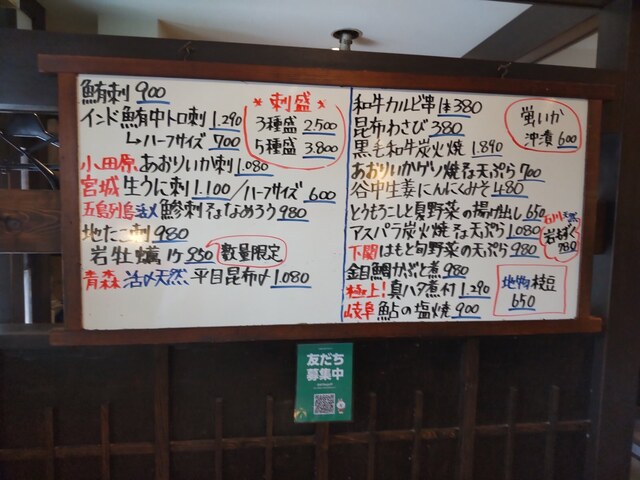 鮪刺 900
インド鮪中トロ刺 1.290
↳ハーフサイズ 700
小田原 あおりいか刺 1.080
宮城 生うに刺 1.100/ハーフサイズ 600
五島列島 活〆 鯵刺 又はなめろう 980
地たこ刺 980
岩牡蠣 1ケ 930
数量限定
青森 活〆天然、平目昆布〆 1.080
*刺盛*
3種盛 2.500
5種盛 3.800
和牛カルビ串 1本380
昆布わさび 380
黒毛和牛炭火焼 1.890
あおりいかゲソ焼 又は天ぷら 700
谷中生姜にんにくみそ 480
とうもろこしと夏野菜の揚げ出し 650
アスパラ炭火焼 又は天ぷら 1.080
下関 はもと旬野菜の天ぷら 980
金目鯛かぶと煮 980
極上! 真ハタ煮付 1.290
岐阜 鮎の塩焼 900
蛍いか
沖漬 600
石川 天然
岩もずく
780
地物 枝豆
650
友だち
募集中